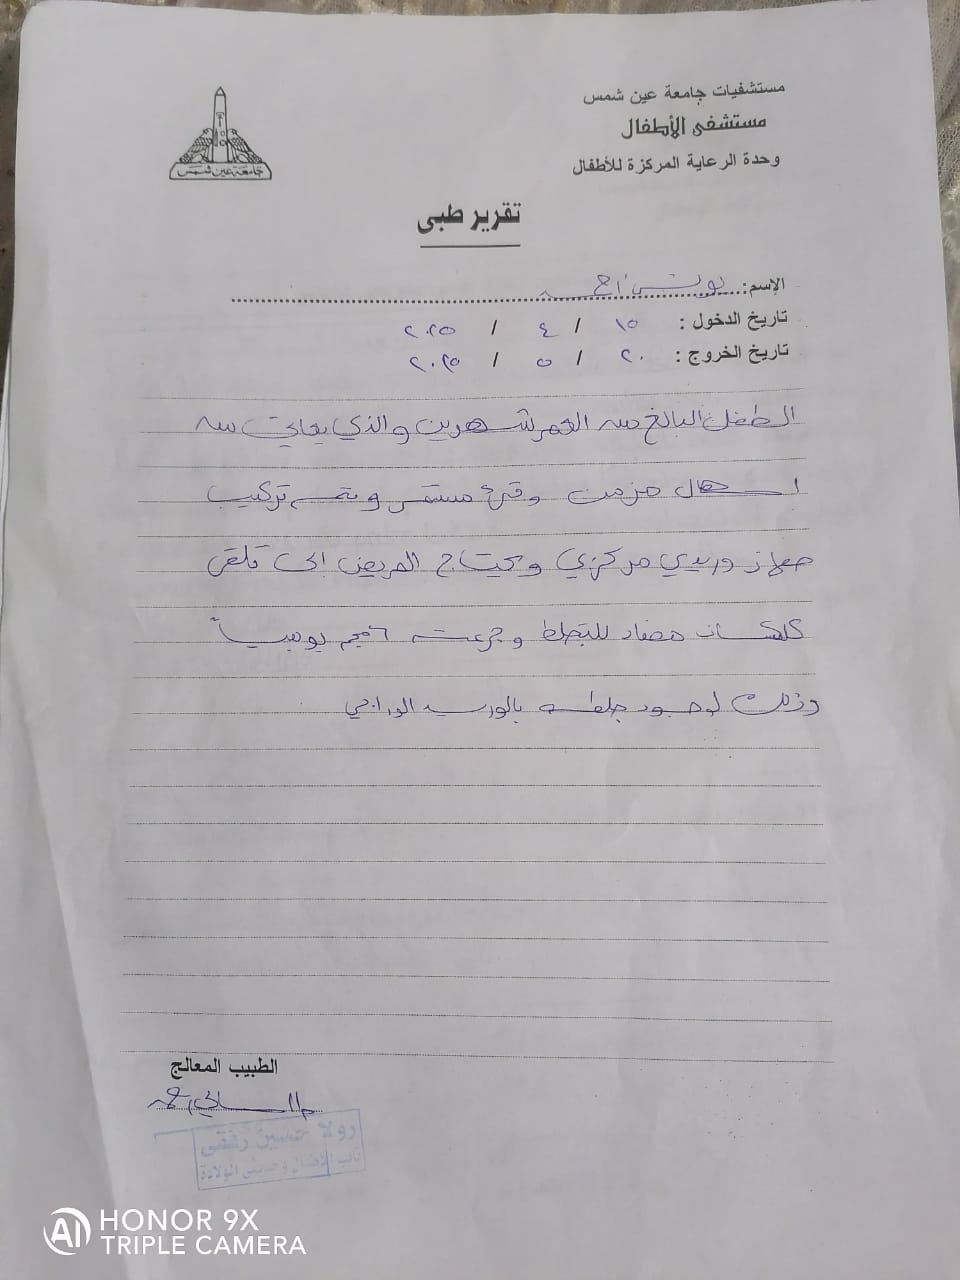 مستشفيات جامعة عين شمس
مستشفى الأطفال
وحدة الرعاية المركزة للأطفال
جامعة عين شمس
تقرير طبى
الإسم: يونس احمد
تاريخ الدخول : ١٥ / ٤ / ٢٠٢٥
تاريخ الخروج : ٢٠ / ٥ / ٢٠٢٥
الطفل البالغ من العمر شهرين والذي يعاني من
اسهال مزمن وقئ مستمر وتم تركيب
جهاز وريدي مركزي ويحتاج المريض إلى تلقى
مضاد للتجلط وجرعته يومياً
وذلك لوجود جلطه بالوريد
الطبيب المعالج
رولا حسين
نائب الأطفال وحديثى الولادة
HONOR 9X
TRIPLE CAMERA